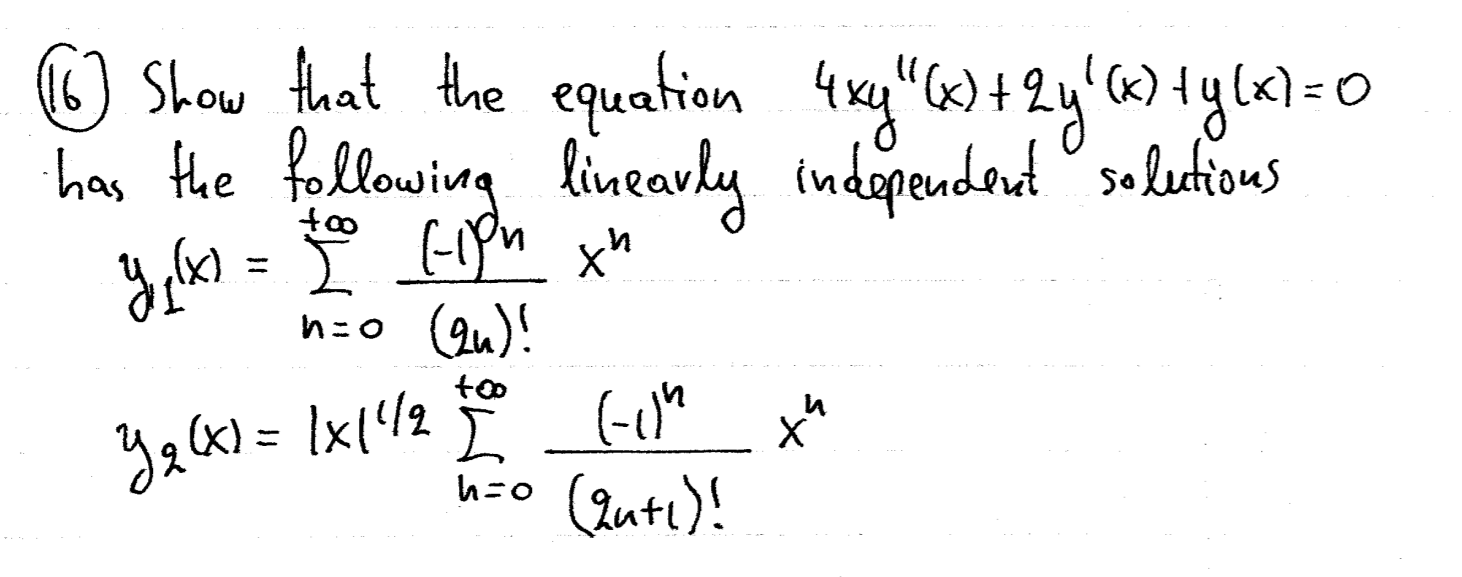 (16) Show that the equation 4xy''(x)+2y'(x)+y(x)=0
has the following linearly independent solutions
y₁(x) = +∞ Σ n=0 (-1)ⁿ / (2n)! xⁿ
y₂(x) = |x|^{1/2} +∞ Σ n=0 (-1)ⁿ / (2n+1)! xⁿ